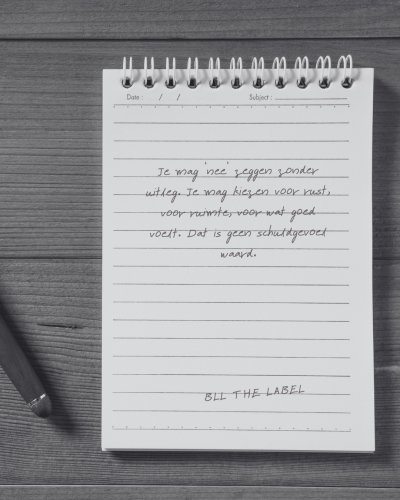 Date : / / Subject :
Je mag 'nee' zeggen zonder
uitleg. Je mag kiezen voor rust,
voor ruimte, voor wat goed
voelt. Dat is geen schuldgevoel
waard.
BLL THE LABEL